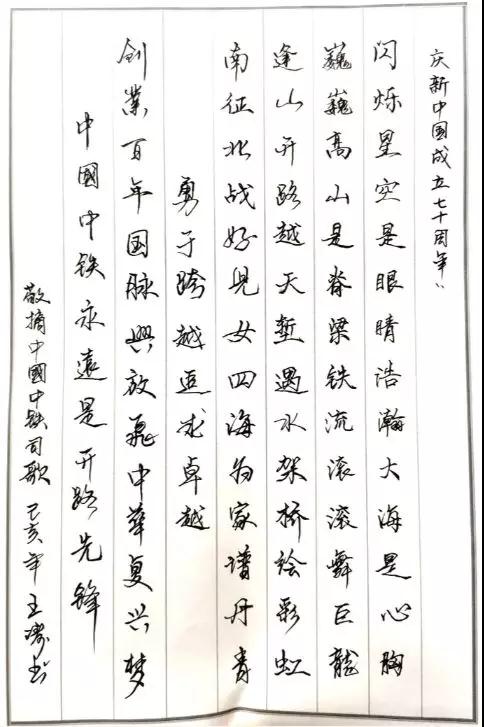 庆新中国成立七十周年
闪烁星空是眼睛浩瀚大海是心胸
巍巍高山是脊梁铁流滚滚舞巨龙
逢山开路越天堑遇水架桥绘彩虹
南征北战好儿女四海为家谱丹青
勇于跨越追求卓越
创業百年国脉興放飛中華复兴梦
中國中铁永遠是开路先锋
敬摘中國中铁司歌 己亥年王涛书